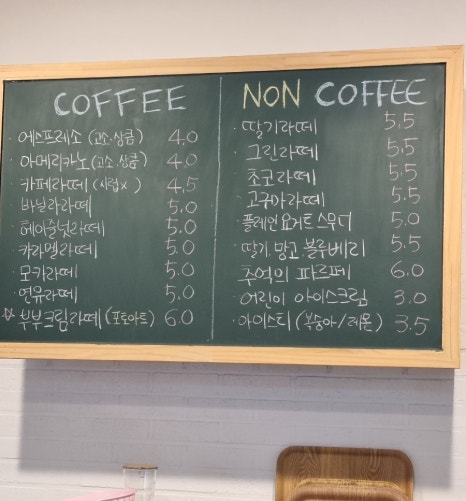 COFFEE
· 에스프레소 (고소.상큼) 4.0
· 아메리카노 (고소.상큼) 4.0
· 카페라떼 (시럽x) 4.5
· 바닐라라떼 5.0
· 헤이즐넛라떼 5.0
· 카라멜라떼 5.0
· 모카라떼 5.0
· 연유라떼 5.0
☆ 부부크림라떼 (포토아트) 6.0
NON COFFEE
· 딸기라떼 5.5
· 그린라떼 5.5
· 초코라떼 5.5
· 고구마라떼 5.5
· 플레인 요거트 스무디 5.0
· 딸기.망고.블루베리 5.5
· 추억의 파르페 6.0
· 어린이 아이스크림 3.0
· 아이스티 (복숭아/레몬) 3.5